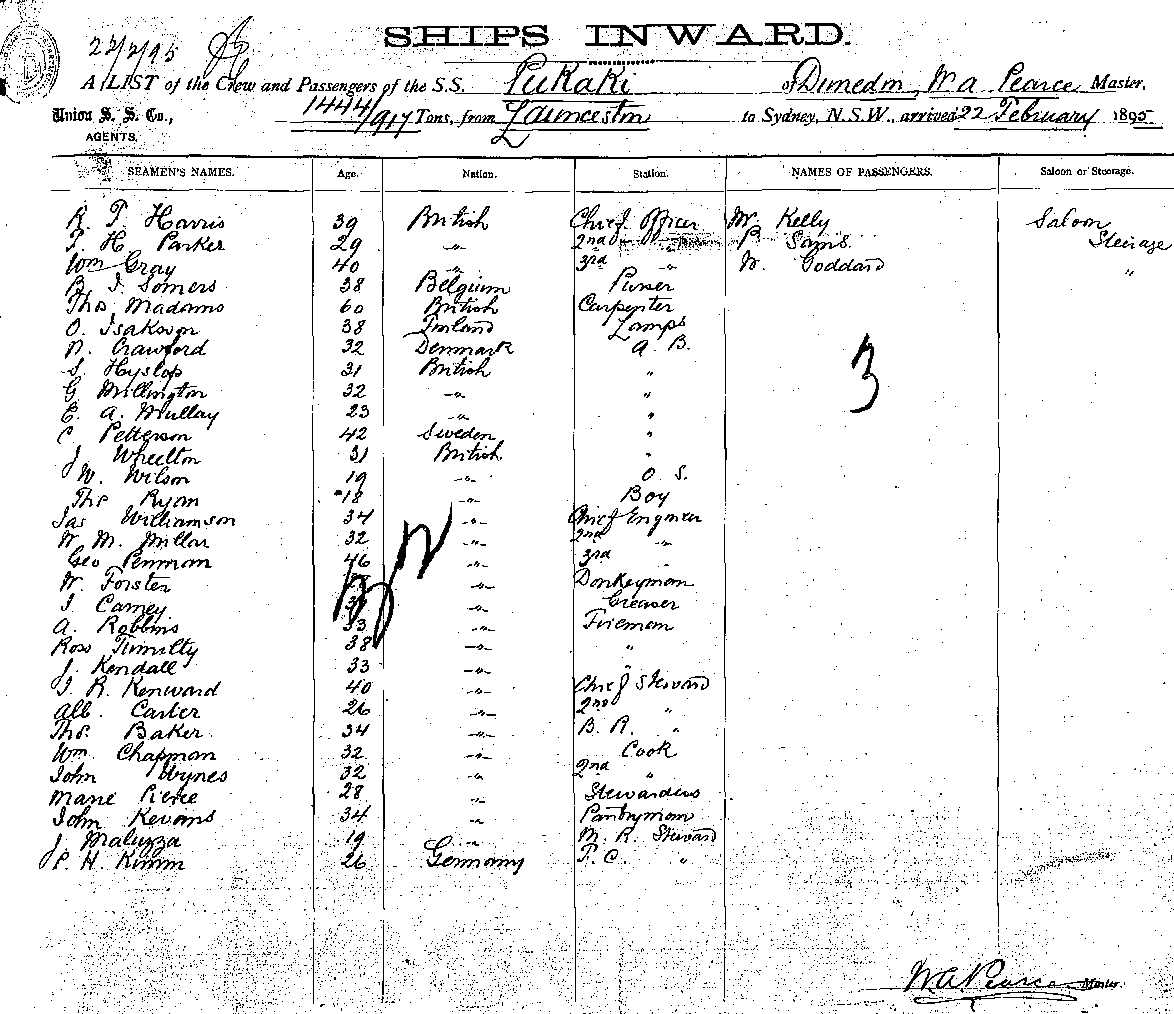 22/2/95
SHIPS INWARD.
A LIST of the Crew and Passengers of the S.S. Pukaki of Dunedin, W a Pearce, Master,
Union S. S. Co., AGENTS. 1444/917 Tons, from Launceston to Sydney, N.S.W., arrived 22 February 1895
SEAMEN'S NAMES. Age. Nation. Station. NAMES OF PASSENGERS. Saloon or Steerage.
R. T. Harris 39 British Chief Officer W. Kelly Saloon
T. H Parker 29 -"- 2nd " P Sams Steerage
Wm Gray 40 -"- 3rd " W. Goddard "
B. J. Somers 38 Belgium Purser
Thos Madams 60 British Carpenter
O. Isakson 38 Finland Lamps
N. Crawford 32 Denmark A. B.
S. Hyslop 31 British "
G. Millington 32 -"- "
E. A. Mullay 23 -"- "
C Petterson 42 Sweden "
J Wheelton 31 British "
W. Wilson 19 -"- O. S.
Thos Ryan 18 -"- Boy
Jas Williamson 34 -"- Chief Engineer
W. M. Millar 32 -"- 2nd "
Geo Penman 46 -"- 3rd
W. Forster -"- Donkeyman
J. Carney -"- Greaser
A. Robbins 33 -"- Fireman
Ross Tumilty 38 -"- "
J. Kendall 33 -"- "
J. R. Kenward 40 -"- Chief Steward
Alb. Carter 26 -"- 2nd "
Thos. Baker 34 -"- B. R. "
Wm. Chapman 32 -"- Cook
John Wynes 32 -"- 2nd "
Marie Pierce 28 -"- Stewardess
John Kevans 34 -"- Pantryman
J. Maluzza 19 -"- M. R. Steward
P. H. Kimm 26 Germany F. C. "
3
32
W A Pearce Master.